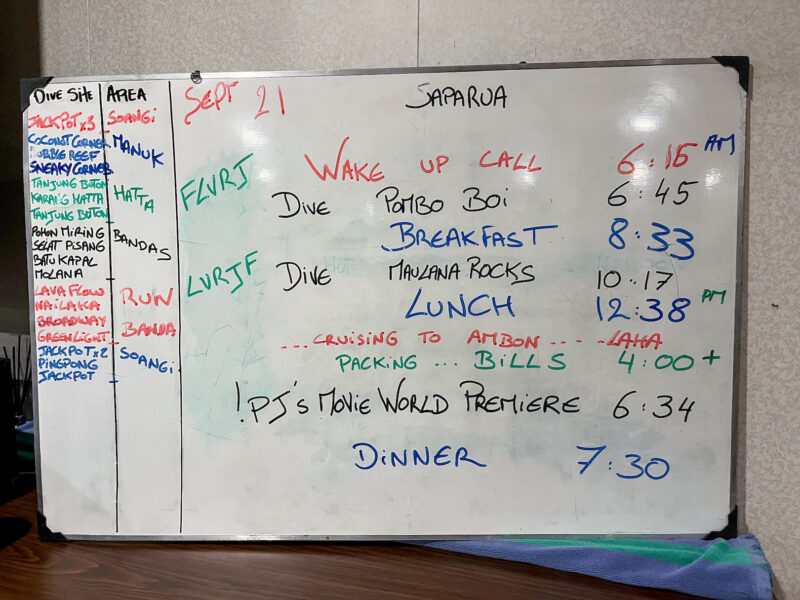 DIVE SITE AREA
JACKPOT x3 SOANGI
COCONUT CORNER MANUK
REEF
SNEAKY CORNER
TANJUNG BUTON HATTA
KARANG HATTA
TANJUNG BUTON
POHON MIRING BANDAS
SELAT PISANG
BATU KAPAL
MOLANA
LAVA FLOW RUN
NAILAKA
BROADWAY BANDA
GREENLIGHT
JACKPOT x2 SOANGI
PINGPONG
JACKPOT
SEPT 21 SAPARUA
WAKE UP CALL 6:15 AM
FLVRJ
DIVE POMBO BOI 6:45
BREAKFAST 8:33
LVRJF
DIVE MAULANA ROCKS 10:17
LUNCH 12:38 PM
... CRUISING TO AMBON ---- LAHA
PACKING ... BILLS 4:00 +
! PJ'S MOVIE WORLD PREMIERE 6:34
DINNER 7:30